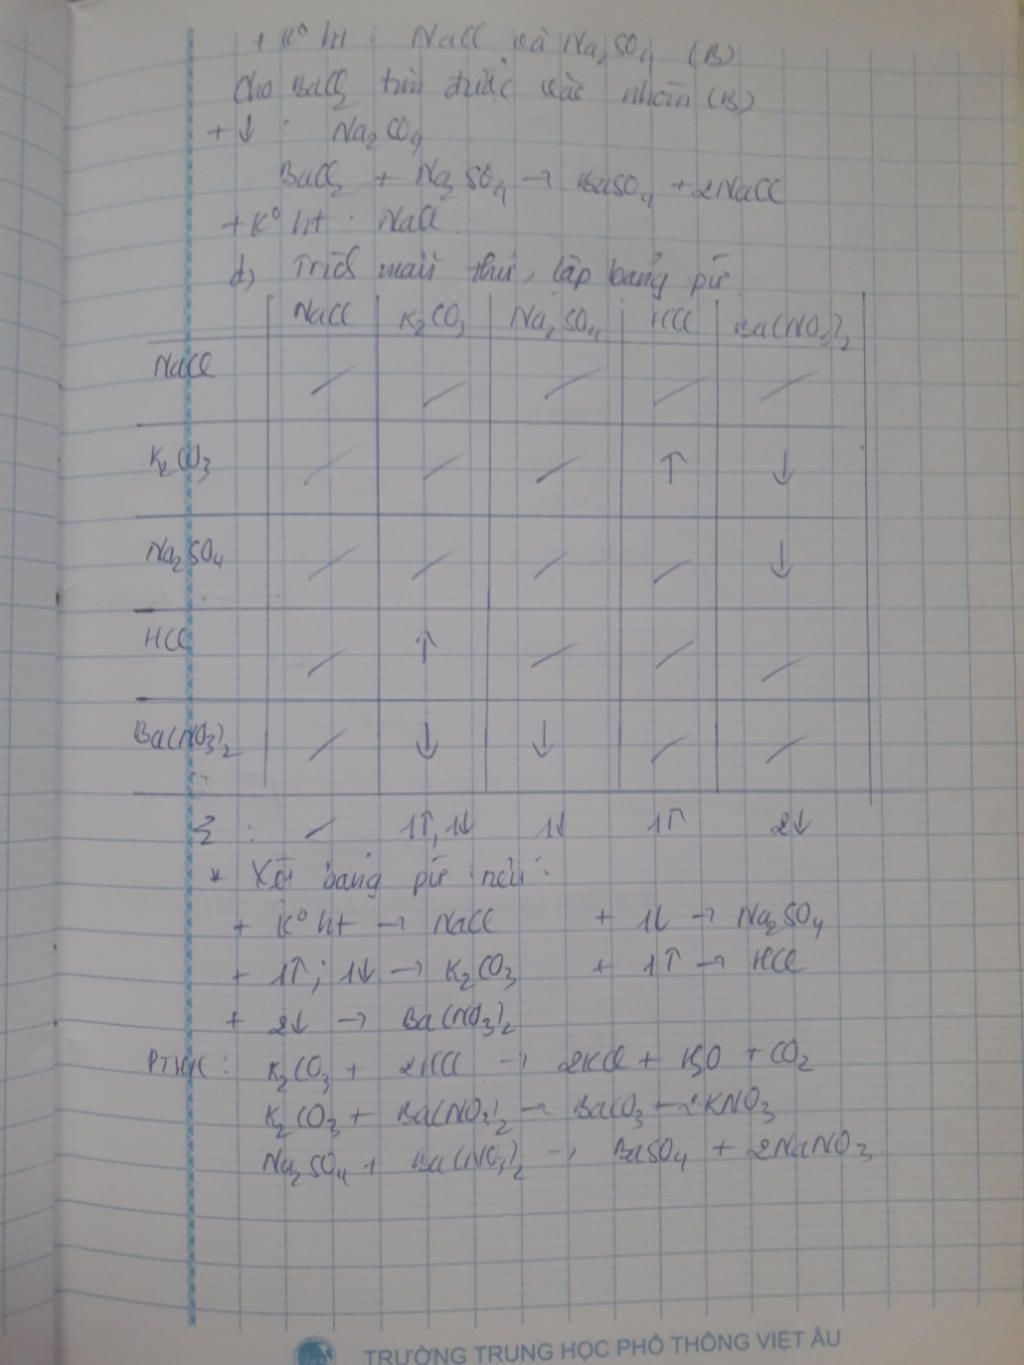 + K° ht : NaCl và Na2SO4 (B)
Cho BaCl2 từ được vào nhóm (B)
+ ↓ : Na2CO4
BaCl2 + Na2SO4 → BaSO4 + 2NaCl
+ K° ht : NaCl
d) Trích mẫu thử, lập bảng pứ
NaCl K2CO3 Na2SO4 HCl Ba(NO3)2
NaCl / / / / /
K2CO3 / / / ↑ ↓
Na2SO4 / / / / ↓
HCl / ↑ / / /
Ba(NO3)2 / ↓ ↓ / /
Σ : / 1↑,1↓ 1↓ 1↑ 2↓
* Xét bảng pứ nếu :
+ K° ht → NaCl + 1↓ → Na2SO4
+ 1↑; 1↓ → K2CO3 + 1↑ → HCl
+ 2↓ → Ba(NO3)2
PTHH : K2CO3 + 2HCl → 2KCl + H2O + CO2
K2CO3 + Ba(NO3)2 → BaCO3 + 2KNO3
Na2SO4 + Ba(NO3)2 → BaSO4 + 2NaNO3
TRƯỜNG TRUNG HỌC PHỔ THÔNG VIỆT ÂU